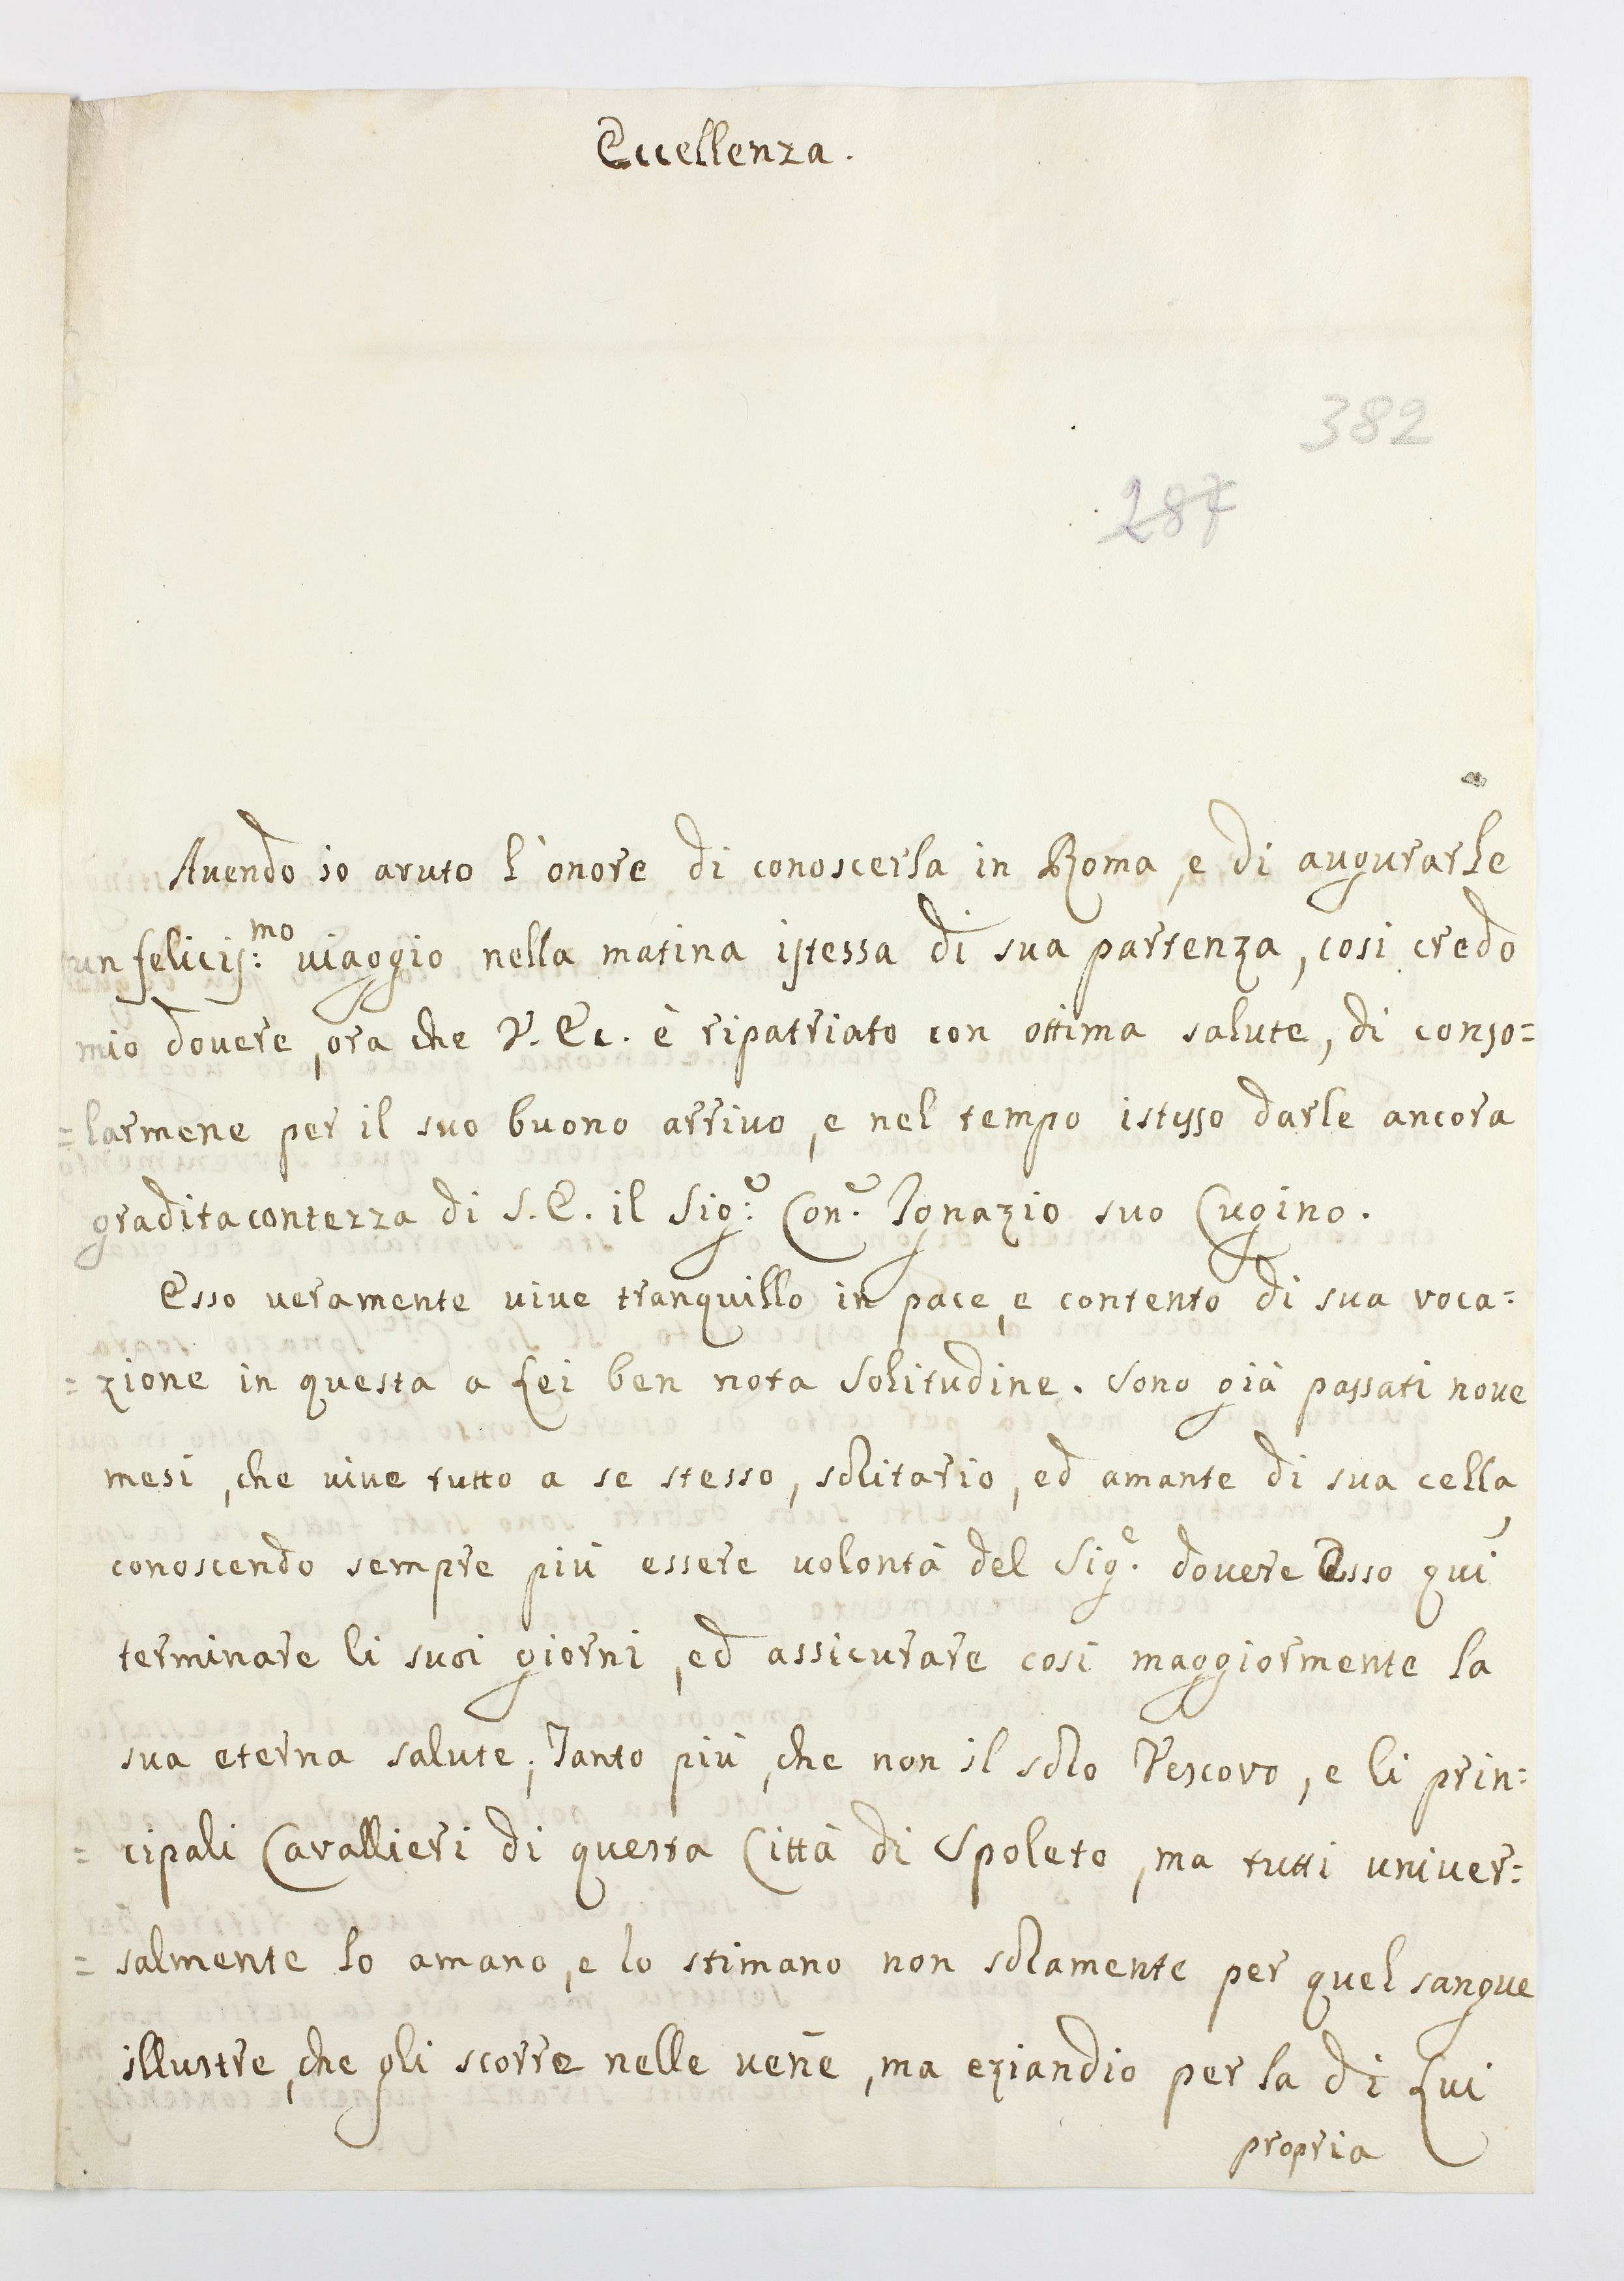 Eccellenza.
382
287
Auendo io avuto l'onore di conoscerla in Roma, e di augurarle
un felicis:mo uiaggio nella matina istessa di sua partenza, cosi credo
mio douere, ora che V. Ec. è ripatriato con ottima salute, di conso=
=larmene per il suo buono arriuo, e nel tempo istesso darle ancora
gradita contezza di S. E. il Sig:e Con:e Ignazio suo Cugino.
Esso ueramente uiue tranquillo in pace, e contento di sua voca=
=zione in questa a Lei ben nota Solitudine. Sono già passati noue
mesi, che uiue tutto a se stesso, solitario, ed amante di sua cella,
conoscendo sempre più essere uolontà del Sig.e douere Esso qui
terminare li suoi giorni, ed assicurare cosi maggiormente la
sua eterna salute; Tanto più, che non il solo Vescovo, e li prin=
=cipali Cavallieri di questa Città di Spoleto, ma tutti univer=
=salmente lo amano, e lo stimano non solamente per quel sangue
illustre, che gli scorre nelle uene, ma eziandio per la di Lui
propria